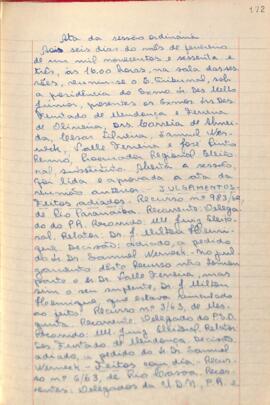 172
Ata da sessão ordinária
Aos seis dias do mês de fevereiro
de um mil novecentos e sessenta e
três, às 16,00 horas, na sala das ses-
sões, reuniu-se o E. Tribunal, sob
a presidência do Exmo Sr. Des.
presentes os Exmos Srs. Des.
Furtado de Mendonça e Ferreira
de Oliveira, Drs. Correia de
Cesar Silveira, Samuel Wer-
neck, Valle Ferreira e José
Procurador Regional Eleito-
ral, substituto. Aberta a sessão,
foi lida e aprovada a ata da
reunião anterior - JULGAMENTOS -
Feitos adiados: Recurso nº 983/62,
de Rio Paranaíba. Recorrente: Delega-
do do P.R. Recorrido: MM. Juiz Eleito-
ral. Relator: Dr. J. Milton
Decisão: adiado, a pedido
do Dr. Samuel Werneck. No jul-
gamento dêste Recurso não tomou
parte o Dr. Valle Ferreira, mas
sim o seu suplente, Dr. J. Milton
que estava vinculado
ao feito. Recurso nº 3/63, de
Recorrente: Delegado do P.S.D.
Recorrido: MM. Juiz Eleitoral. Relator:
Des. Furtado de Mendonça. Decisão:
adiado, a pedido do Dr. Samuel
Werneck - Feitos com dia: Recur-
so nº 6/63, de Rio Casca. Recor-
rentes: Delegados da U.D.N., P.R. e